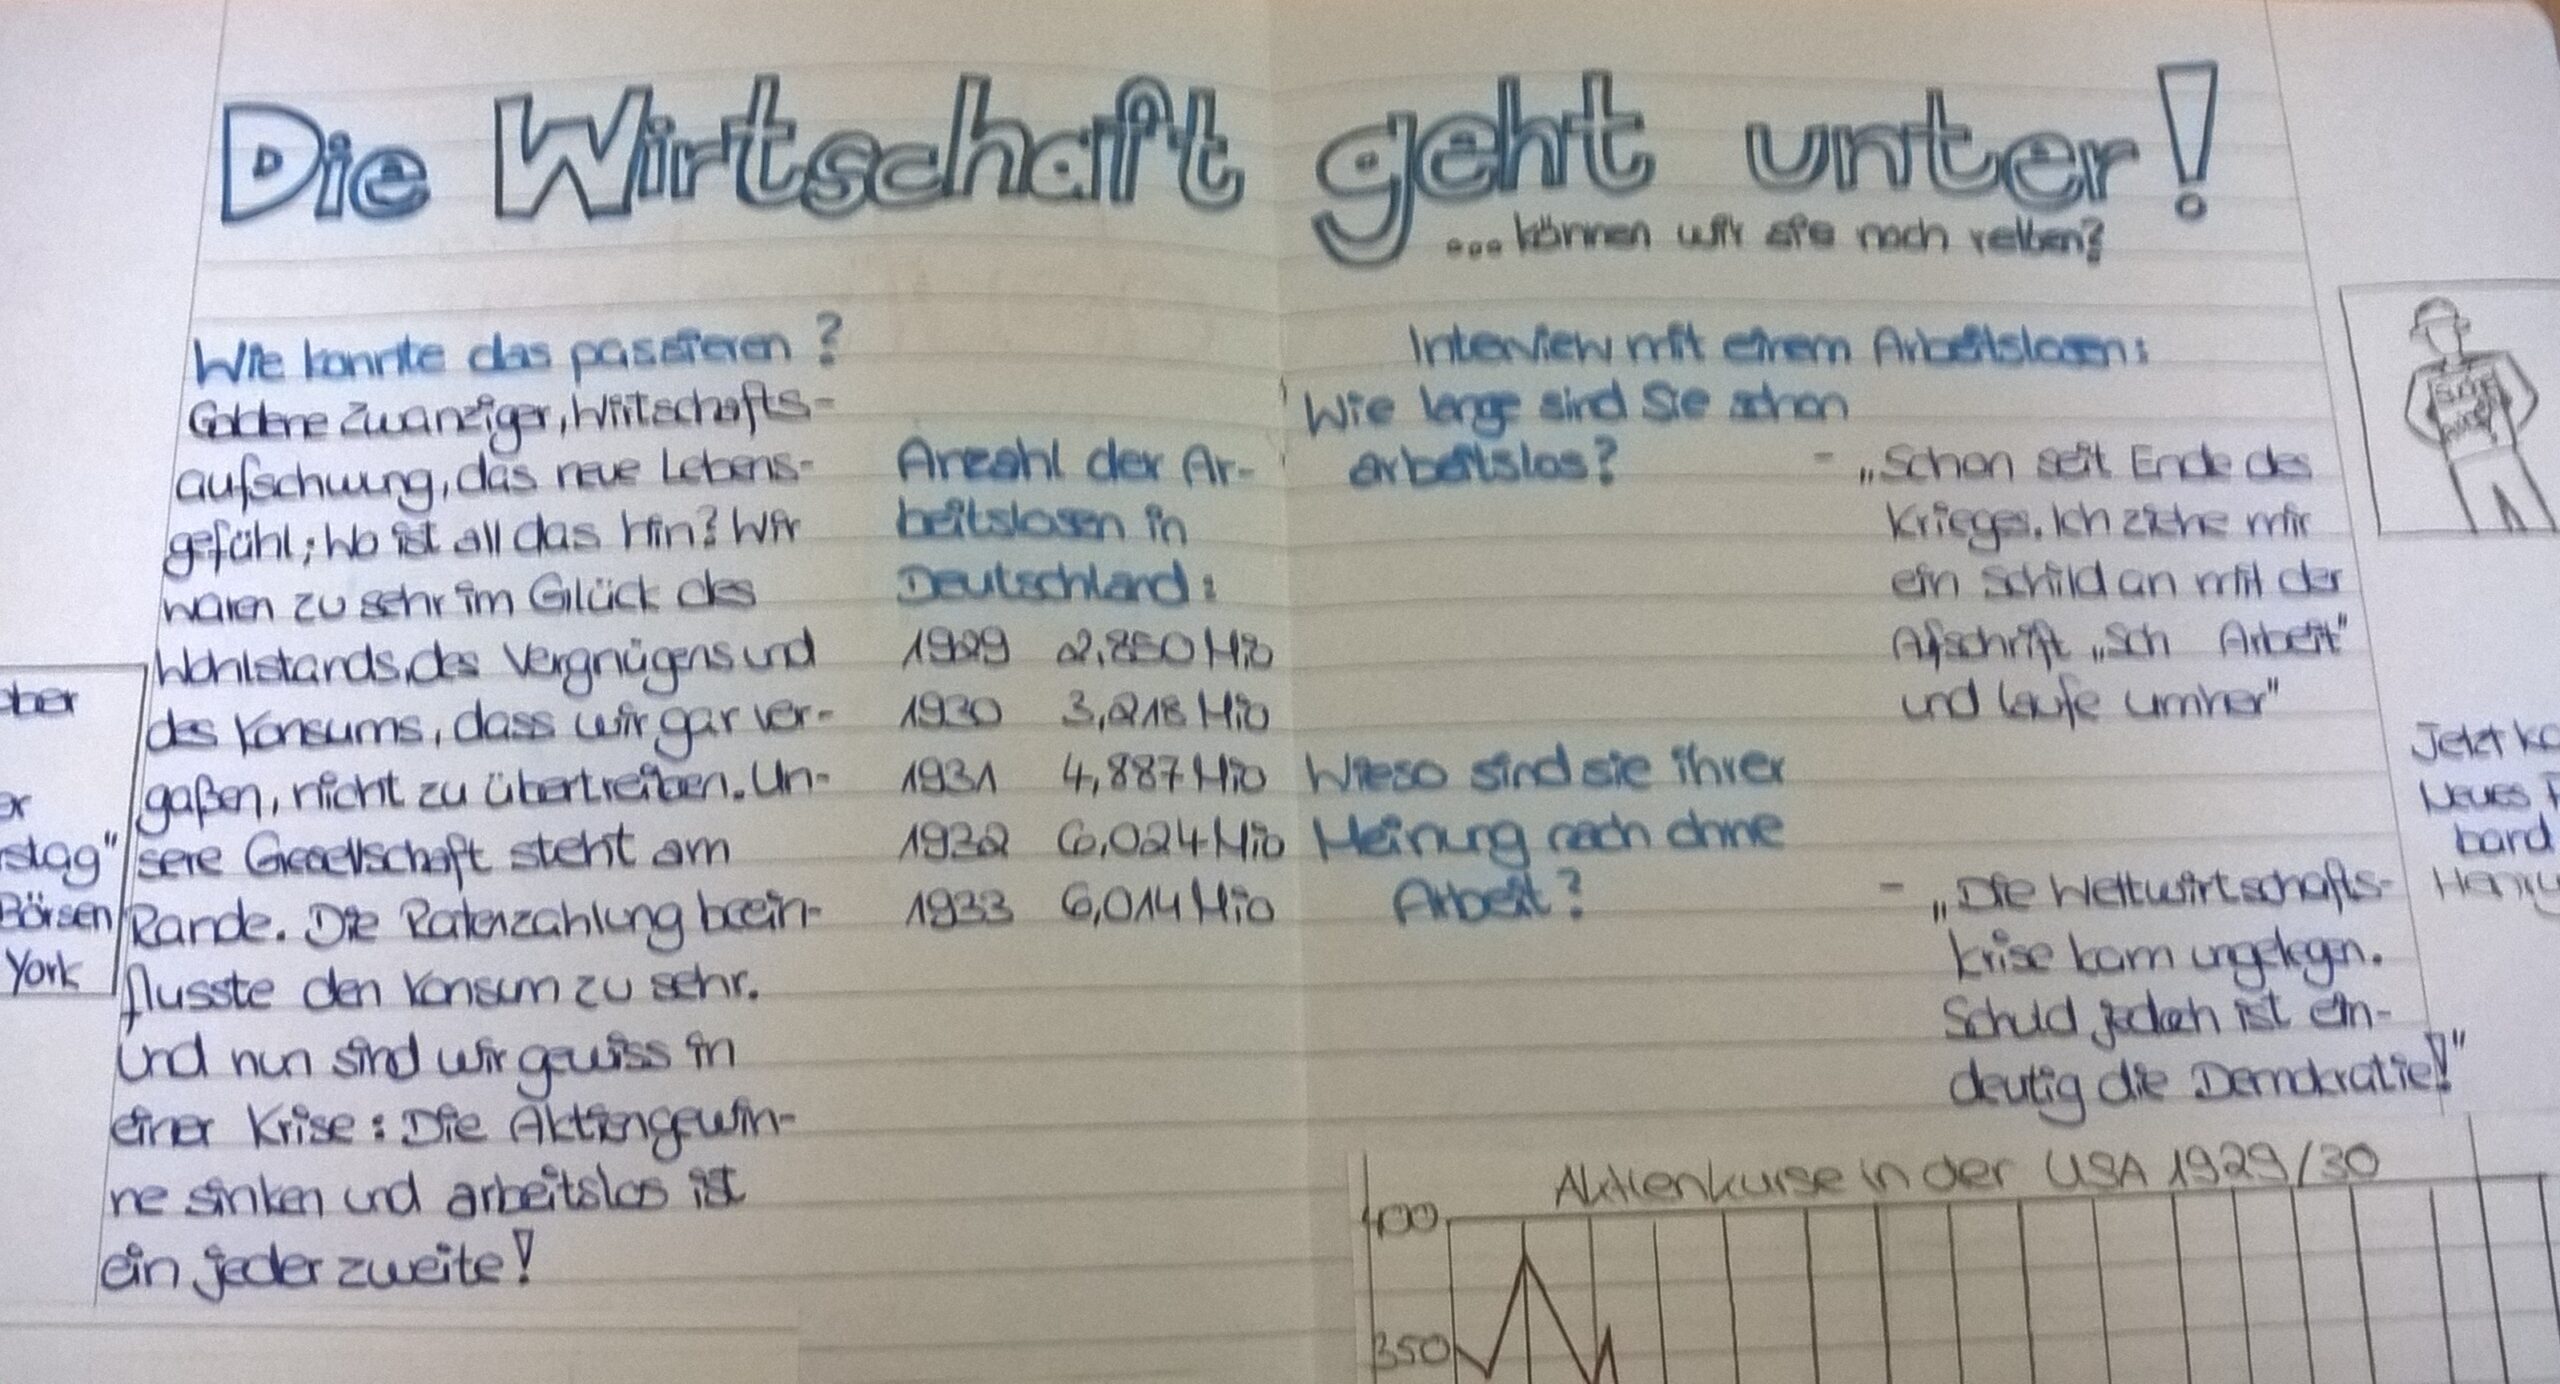 Die Wirtschaft geht unter!
...können wir sie noch retten?
Wie konnte das passieren?
Goldene Zwanziger, Wirtschafts-
aufschwung, das neue Lebens-
gefühl; Wo ist all das hin? Wir
waren zu sehr im Glück des
Wohlstands, des Vergnügens und
des Konsums, dass wir gar ver-
gaßen, nicht zu übertreiben. Un-
sere Gesellschaft steht am
Rande. Die Ratenzahlung beein-
flusste den Konsum zu sehr.
Und nun sind wir gewiss in
einer Krise: Die Aktiengewin-
ne sinken und arbeitslos ist
ein jeder zweite!
Anzahl der Ar-
beitslosen in
Deutschland:
1929 2,850 Mio
1930 3,218 Mio
1931 4,887 Mio
1932 6,024 Mio
1933 6,014 Mio
Interview mit einem Arbeitslosen:
Wie lange sind Sie schon
arbeitslos?
- „Schon seit Ende des
Krieges. Ich ziehe mir
ein Schild an mit der
Afschrift „Sch Arbeit"
und laufe umher"
Wieso sind sie ihrer
Meinung nach ohne
Arbeit?
- „Die Weltwirtschafts-
krise kam ungelegen.
Schuld jedoch ist ein-
deutig die Demokratie!"
Aktienkurse in der USA 1929/30
400
350
ber
er
stag"
Börsen
York
Jetzt ko
Neues
bard
Henry